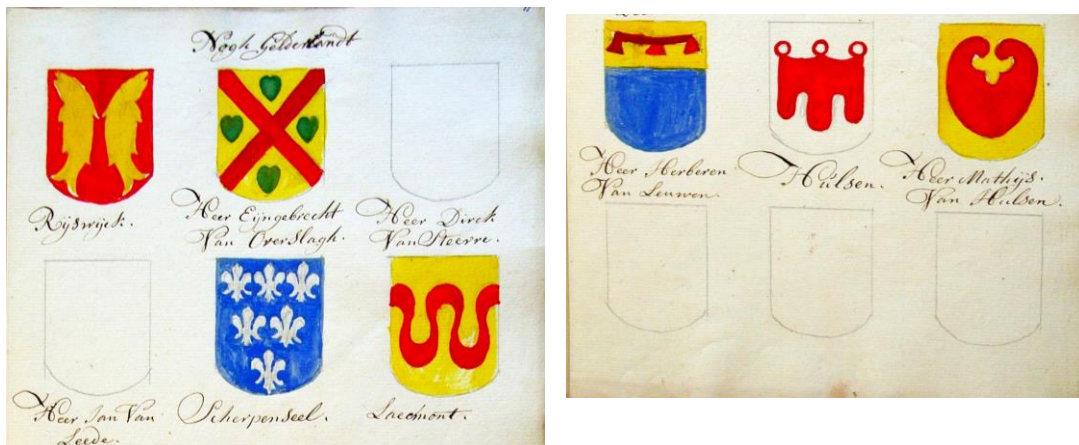 Nogh Gelderlandt
Rijswijck.
Heer Eijngebrecht
Van Overslagh.
Heer Dirck
Van Steerre.
Heer Jan Van
Leede.
Scherpenseel.
Laecmont.
Heer Herberen
Van Leuwen.
Hulsen.
Heer Mathijs.
Van Hulsen.